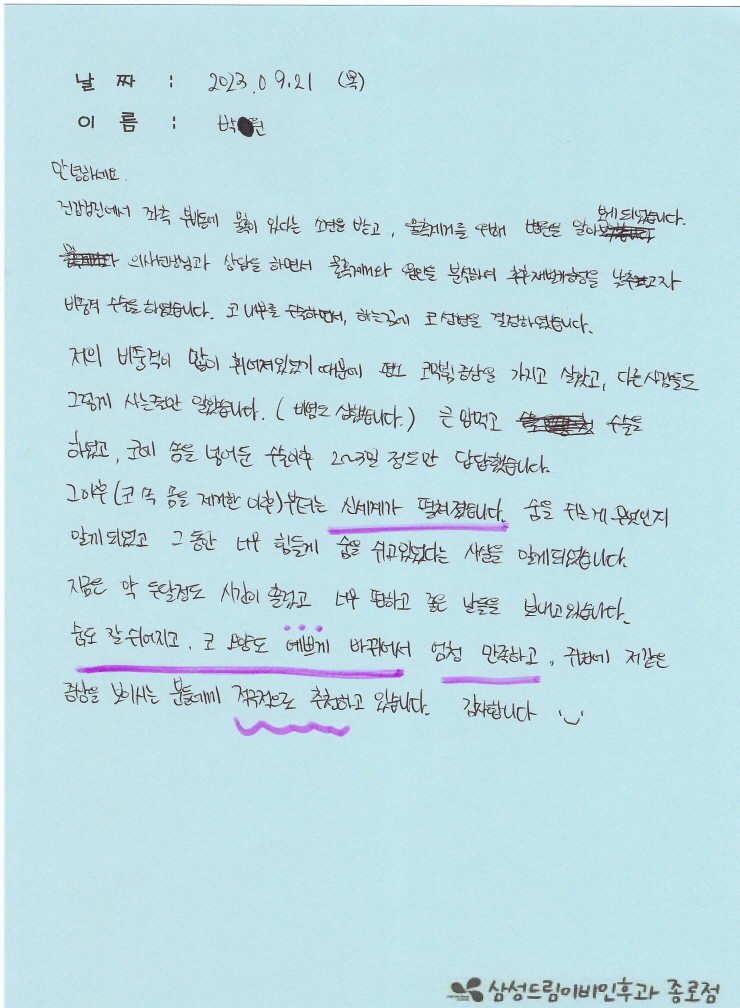 날 짜 : 2023.09.21 (목)
이 름 : 박 원
안녕하세요.
건강검진에서 좌측 부비동에 물혹이 있다는 소견을 받고, 물혹제거를 위해 병원을 알아보게 되었습니다.
의사선생님과 상담을 하면서 물혹제거와 원인을 분석하여 추후 재발가능성을 낮추고자
비중격 수술을 하였습니다. 코 내부를 수술하면서, 하는김에 코 성형을 결정하였습니다.
저의 비중격이 많이 휘어져있었기 때문에 평소 코막힘 증상을 가지고 살았고, 다른사람들도
그렇게 사는줄만 알았습니다. (비염도 심했습니다.) 큰 맘먹고 수술을
하였고, 코에 솜을 넣어둔 수술이후 2~3일 정도만 답답했습니다.
그이후 (코 속 솜을 제거한 이후)부터는 신세계가 펼쳐졌습니다. 숨을 쉬는게 무엇인지
알게되었고 그 동안 너무 힘들게 숨을 쉬고있었다는 사실을 알게되었습니다.
지금은 약 두달정도 시간이 흘렀고 너무 편하고 좋은 날들을 보내고있습니다.
숨도 잘 쉬어지고, 코 모양도 예쁘게 바뀌어서 엄청 만족하고, 주변에 저같은
증상을 보이시는 분들에게 적극적으로 추천하고 있습니다. 감사합니다
삼성드림이비인후과 종로점